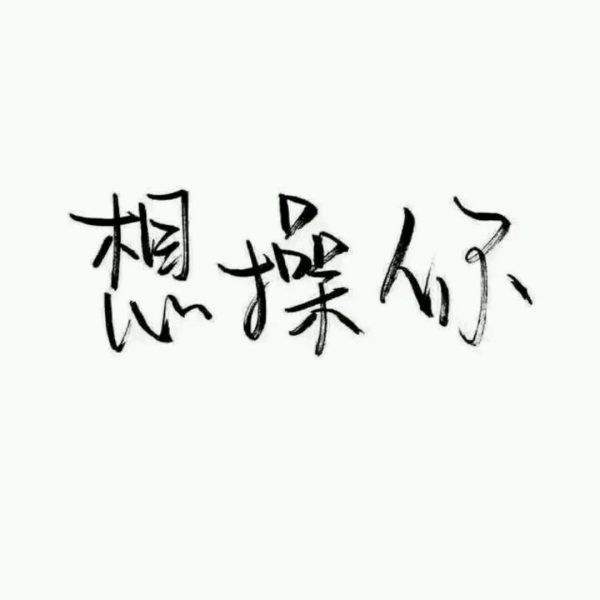 想操你